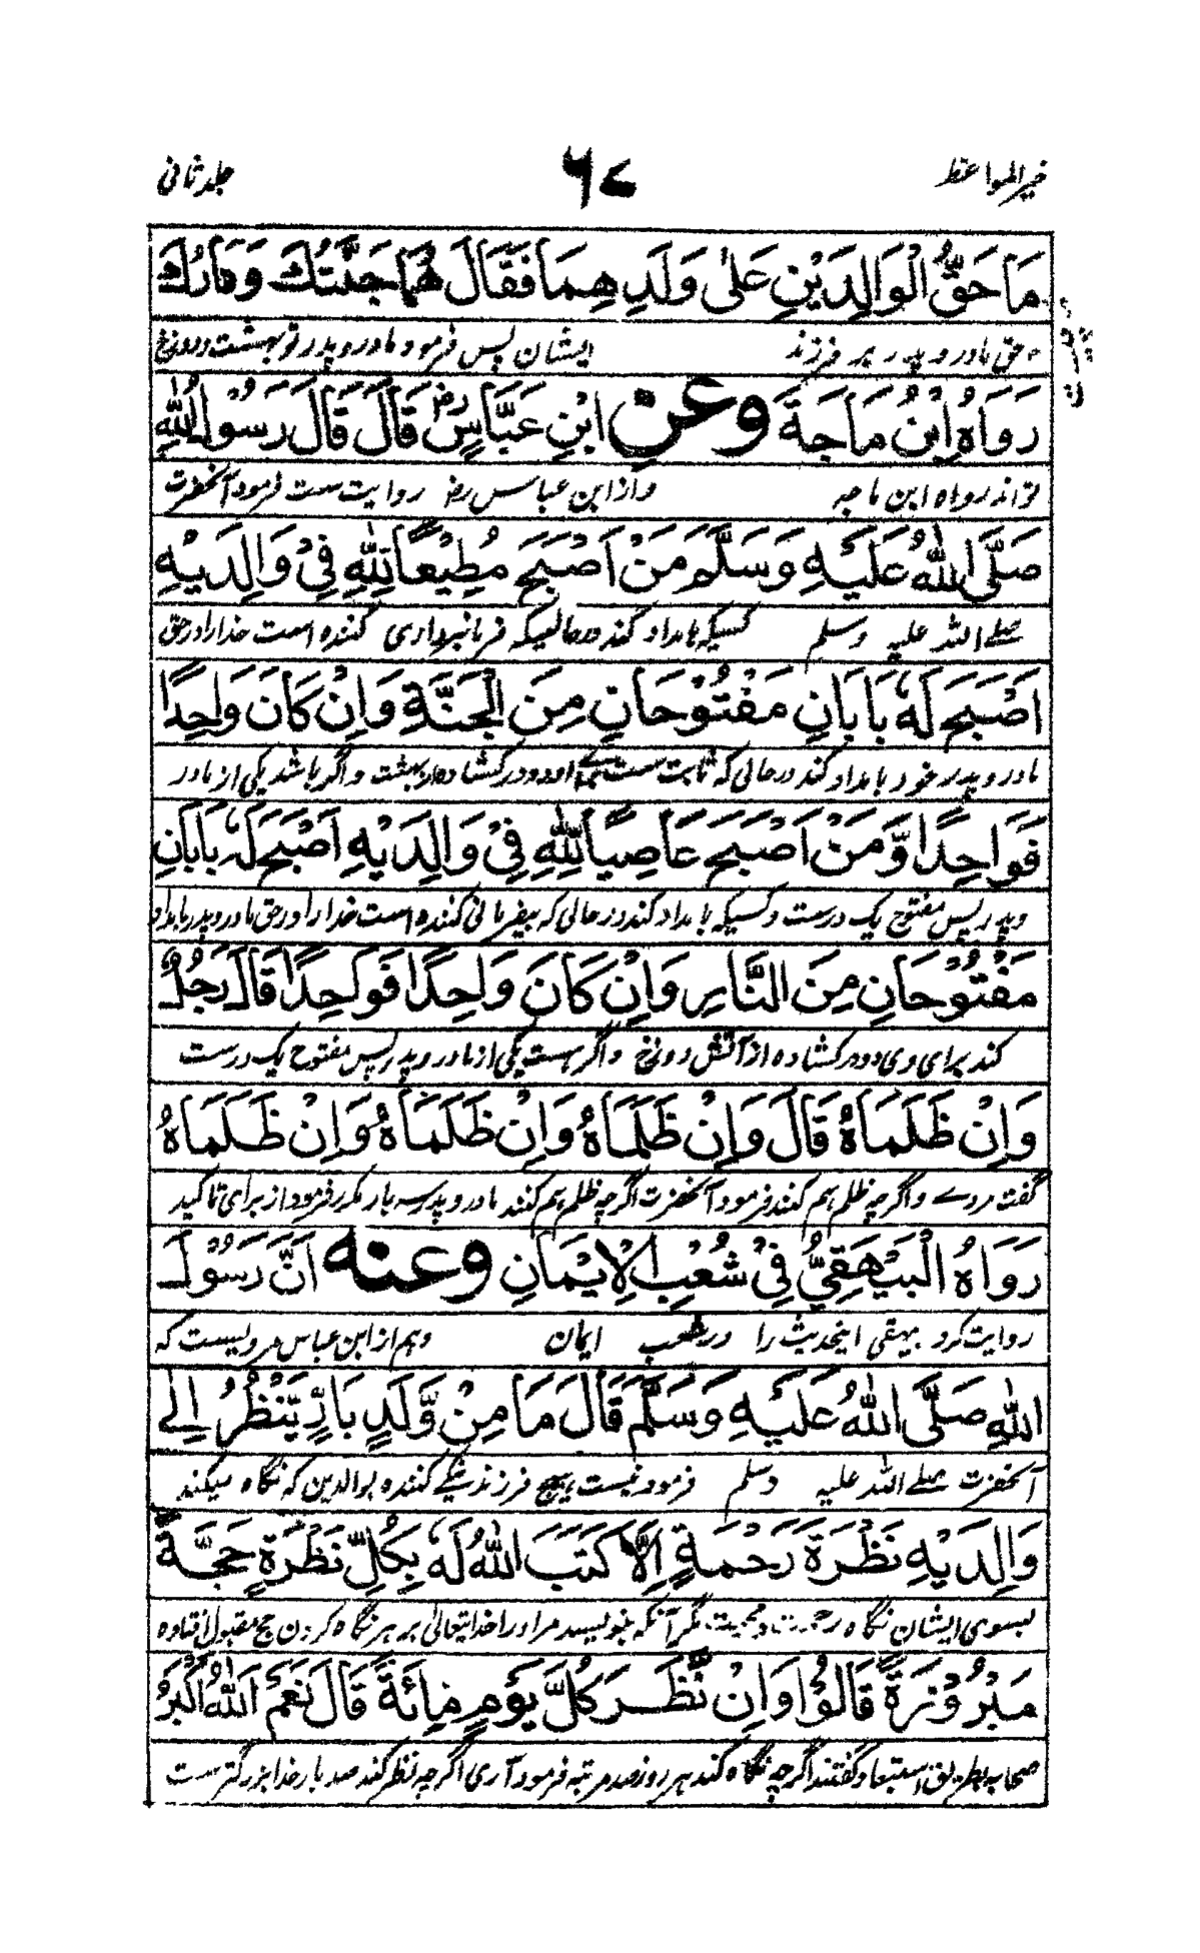 خیر المواعظ ۶۷ جلد ثانی
مَا حَقُّ الْوَالِدَيْنِ عَلٰى وَلَدِهِمَا فَقَالَ هُمَا جَنَّتُكَ وَنَارُكَ
حق مادر و پدر بر فرزند ایشان پس فرمود مادر و پدر تو بهشت و دوزخ
رَوَاهُ ابْنُ مَاجَةَ وعن ابْنِ عَبَّاسٍ رض قَالَ قَالَ رَسُولُ اللّٰهِ
تواند رواه ابن ماجه و از ابن عباس رض روایت ست فرمود آنحضرت
صَلَّى اللّٰهُ عَلَيْهِ وَسَلَّمَ مَنْ اَصْبَحَ مُطِيْعًا لِلّٰهِ فِيْ وَالِدَيْهِ
صلے اللہ علیہ وسلم کسیکه بامداد کند درحالیکه فرمانبرداری کننده است خدا را در حق
اَصْبَحَ لَهٗ بَابَانِ مَفْتُوْحَانِ مِنَ الْجَنَّةِ وَاِنْ كَانَ وَاحِدًا
مادر و پدر خود بامداد کند درحالی که ثابت ست او دو در کشاده از بهشت و اگر باشد یکی از مادر
فَوَاحِدًا وَّمَنْ اَصْبَحَ عَاصِيًا لِلّٰهِ فِيْ وَالِدَيْهِ اَصْبَحَ لَهٗ بَابَانِ
و پدر پس مفتوح یک درست و کسیکه بامداد کند درحالی که بیفرمانی کننده است خدا را در حق مادر و پدر بامداد
مَفْتُوْحَانِ مِنَ النَّارِ وَاِنْ كَانَ وَاحِدًا فَوَاحِدًا قَالَ رَجُلٌ
کند برای وی دو در کشاده از آتش دوزخ و اگر هست یکی از مادر و پدر پس مفتوح یک درست
وَاِنْ ظَلَمَاهُ قَالَ وَاِنْ ظَلَمَاهُ وَاِنْ ظَلَمَاهُ وَاِنْ ظَلَمَاهُ
گفت مردے و اگرچه ظلم هم کنند فرمود آنحضرت اگرچه ظلم هم کنند مادر و پدر سه بار مکرر فرمود از برای تاکید
رَوَاهُ الْبَيْهَقِيُّ فِيْ شُعَبِ الْاِيْمَانِ وعنه اَنَّ رَسُوْلَ
روایت کرد بیهقی اینحدیث را در شعب ایمان و هم از ابن عباس مرویست که
اللّٰهِ صَلَّى اللّٰهُ عَلَيْهِ وَسَلَّمَ قَالَ مَا مِنْ وَّلَدٍ بَارٍّ يَّنْظُرُ اِلٰى
آنحضرت صلے اللہ علیہ وسلم فرمود نیست هیچ فرزند نیکی کننده بوالدین که نگاه میکند
وَالِدَيْهِ نَظْرَةَ رَحْمَةٍ اِلَّا كَتَبَ اللّٰهُ لَهٗ بِكُلِّ نَظْرَةٍ حَجَّةً
بسوی ایشان نگاه رحمت و محبت مگر آنکه بنویسد مر او را خدایتعالی بر هر نگاه کردن حج مقبول افتاده
مَبْرُوْرَةً قَالُوْا وَاِنْ نَّظَرَ كُلَّ يَوْمٍ مِائَةً قَالَ نَعَمْ اَللّٰهُ اَكْبَرُ
صحابه بطریق استبعاد گفتند اگرچه نگاه کند هر روز صد مرتبه فرمود آری اگرچه نظر کند صد بار خدا بزرگتر ست